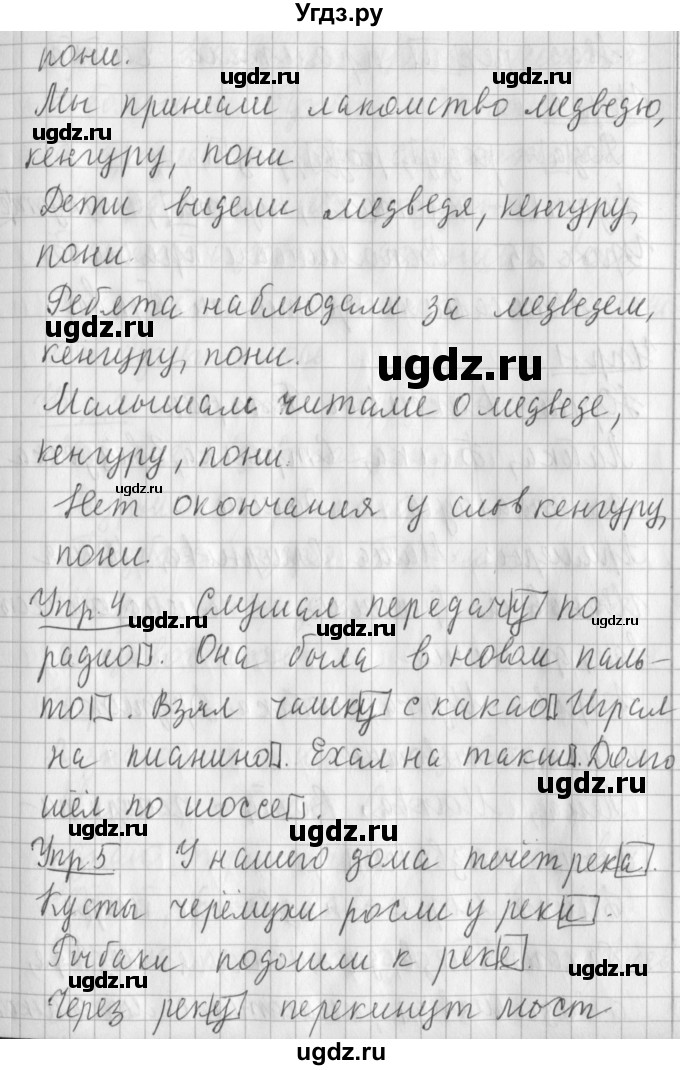 Угдз.ру
пони.
ugdz.ru ugdz.ru
Мы принесли лакомство медведю,
ugdz.ru
кенгуру, пони
ugdz.ru ugdz.ru
Дети видели медведя, кенгуру,
пони.
Ребята наблюдали за медведем,
ugdz.ru
кенгуру, пони.
ugdz.ru
Малышам читаме о медведе,
кенгуру, пони.
ugdz.ru
Нет окончания у слов кенгуру,
пони.
ugdz.ru
Упр. 4 Слушал передачу по
ugdz.ru ugdz.ru ugdz.ru
радио. Она была в новом паль-
то. Взял чашку с какао Играл
ugdz.ru
на пианино. Ехал на такси. Долго
ugdz.ru
шёл по шоссе.
ugdz.ru
Упр 5 У нашего дома течёт река.
Кусты черёмухи росли у реки.
Рыбаки подошли к реке.
ugdz.ru ugdz.ru
Через реку перекинут мост
ugdz.ru